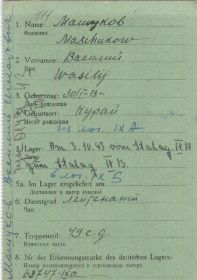 1. Name: Машуков
Фамилия Maschukow
2. Vorname: Василий
Имя Wasilij
3. Geburtstag: 30/I-13г.
4. Geburtsort: Курай
Место рождения
из лаг. IX A
5. Lager: Am 3.10.43 vom Stalag IX A
zum Stalag IX B.
5a. Im Lager eingeliefert am:
Доставлен в лагерь (числа)
6. Dienstgrad Лейтенант
Чин
7. Truppenteil: 49 с.д.
Воинская часть
8. Nr. der Erkennungsmarke des deutschen Lagers:
Номер военнопленного в германском лагере
Машуков Василий